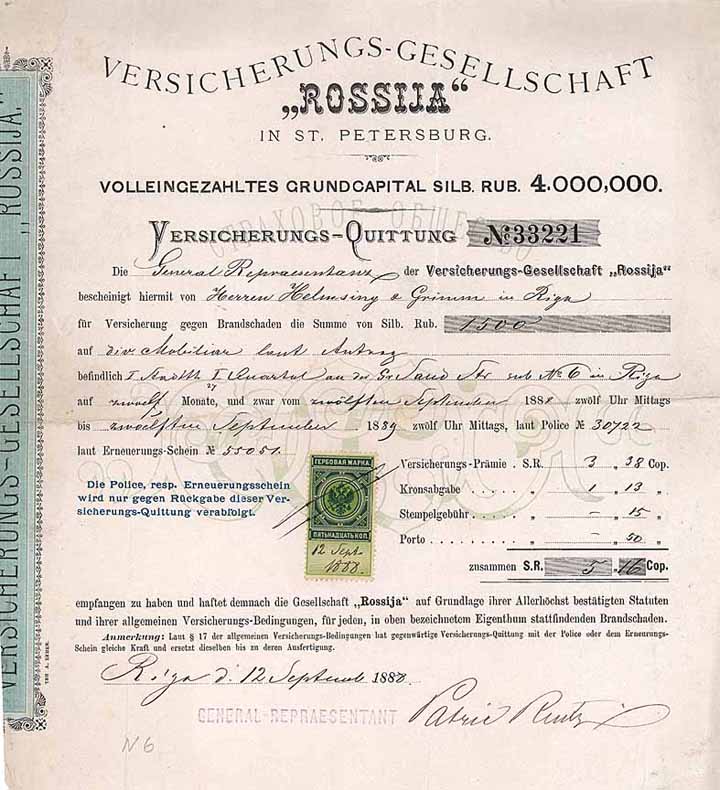 VERSICHERUNGS-GESELLSCHAFT „ROSSIJA"
VERSICHERUNGS-GESELLSCHAFT
„ROSSIJA"
IN ST. PETERSBURG.
VOLLEINGEZAHLTES GRUNDCAPITAL SILB. RUB. 4.000,000.
СТРАХОВОЕ ОБЩЕСТВО
VERSICHERUNGS-QUITTUNG № 33221
Die General Repraesentanz der Versicherungs-Gesellschaft „Rossija"
bescheinigt hiermit von Herren Helmsing & Grimm in Riga
für Versicherung gegen Brandschaden die Summe von Silb. Rub. 1500
auf div. Mobiliar laut Antrag
befindlich I Stadtth I Quartal an der Gr Sand Str sub No 6 in Riga
27
auf zwoelf Monate, und zwar vom zwölften September 1888 zwölf Uhr Mittags
bis zwoelften September 1889 zwölf Uhr Mittags, laut Police № 30722
laut Erneuerungs-Schein № 55051.
Die Police, resp. Erneuerungsschein
wird nur gegen Rückgabe dieser Ver-
sicherungs-Quittung verabfolgt.
ГЕРБОВАЯ МАРКА
ПЯТЬНАДЦАТЬ КОП.
12 Sept.
1888.
Versicherungs-Prämie S.R. 3 „ 38 Cop.
Kronsabgabe . . . . . „ 1 „ 13 „
Stempelgebühr . . . . „ — „ 15 „
Porto . . . . . . . . „ — „ 50 „
zusammen S.R. 5 „ 16 Cop.
empfangen zu haben und haftet demnach die Gesellschaft „Rossija" auf Grundlage ihrer Allerhöchst bestätigten Statuten
und ihrer allgemeinen Versicherungs-Bedingungen, für jeden, in oben bezeichnetem Eigenthum stattfindenden Brandschaden.
Anmerkung: Laut § 17 der allgemeinen Versicherungs-Bedingungen hat gegenwärtige Versicherungs-Quittung mit der Police oder dem Erneuerungs-
Schein gleiche Kraft und ersetzt dieselben bis zu deren Ausfertigung.
Riga d. 12 Septemb 1888.
GENERAL-REPRAESENTANT
N 6